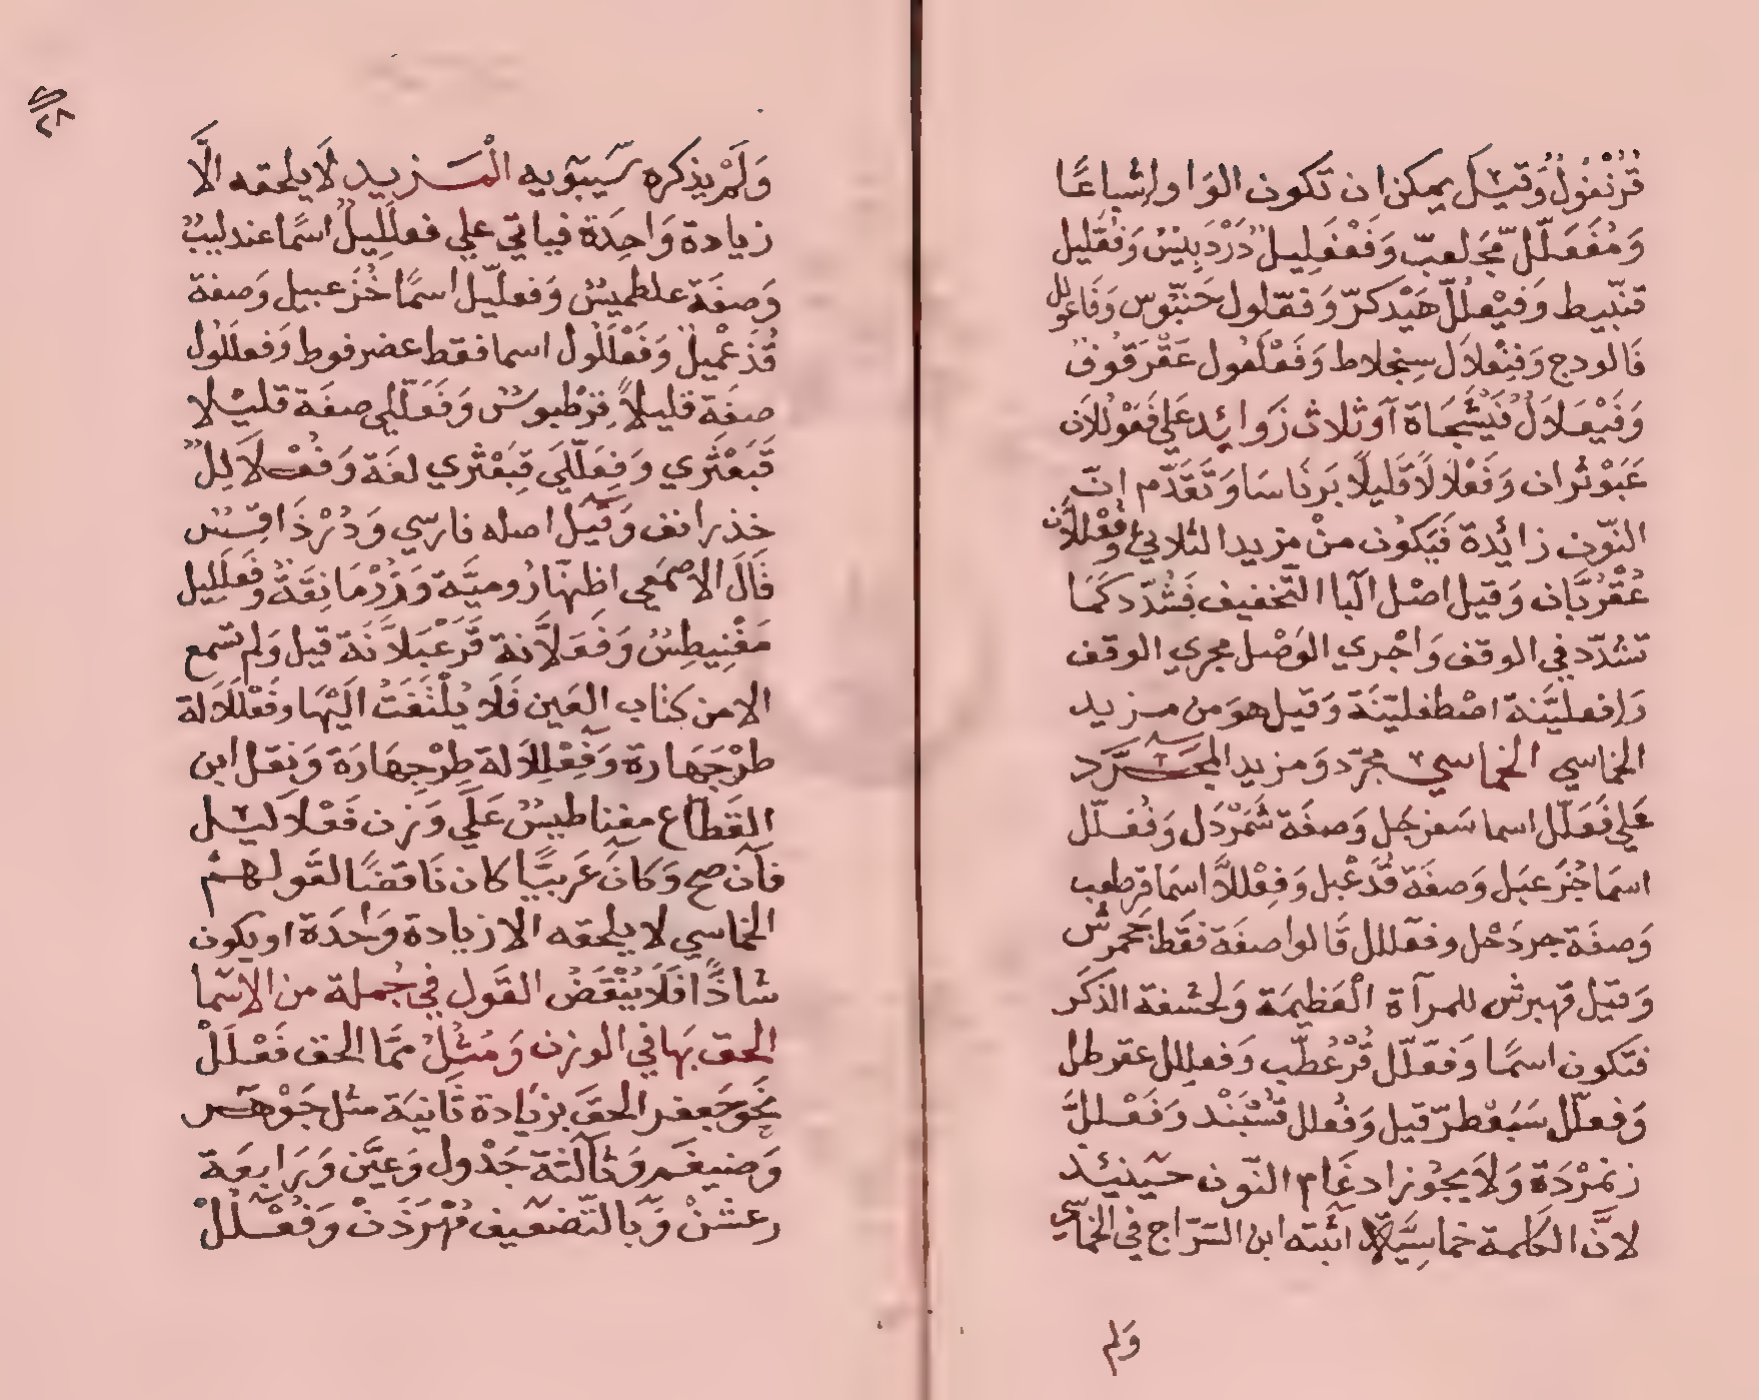 قُرُنْفُولٌ وَقيل يمكن ان تكون الوَاو اشباعًا
وَمُفَعَلّلٌ مُجَلعبّ وَفَعْفَلِيل دَرْدَبِيسٌ وَفُعَّليل
قنّبيط وَفيْعلُلّ هَيْدكرّ وَفعّلول حَنبّوس وَفَاعولل
فَالودج وَفِنْعلاَل سِنجلاط وَفَعْلَعُول عَقْرَقُوف
وَفَيْعَلاَلٌ فَيْشَجَاة آو ثلاث زَوايِد عَلي فَعَوْلُلاَن
عَبَوْثران وَفَعْلاَلاَ قَليلًا بَرنَاسَا وَتَقَدَّم انّ
النّون زائدة فَيَكُون منْ مزيد الثلاثي وفُعْلُلاّن
عُقْرُبَّان وَقيل اصْل البا التخفيف فَشُدّد كمَا
تشدّد في الوقف وَاجْري الوَصْل مجري الوقف
وَافعليَّنة اصْطفليّنَة وَقيل هوَ من مزيد
الخماسي الخماسي مجرّد وَمزيد المجَرَّد
عَلي فَعَلّل اسما سَفرجَل وَصفَة شَمَرْدَل وَفُعَلّل
اسمَا خُزَعبَل وَصفَة قُذَعْبل وَفِعْلَلاّ اسمَا قرطعب
وَصفَة جردَحْل وفعَلّلل قَالوا صفَة فقَط جَحمرش
وَقيل قهبرش للمرآة الْعَظيمَة وَلحشفة الذكَر
فتكون اسمًا وَفعّلّل قُرْعُطّب وَفعلِلل عقرطل
وَفعلّل سَبَعْطرّ قيل وَفُعلل قُسْبَنْد وَفَعْلللّ
زنمرْدَة وَلاَ يجُوز ادغَام النّون حينئذ
لانَّ الكلمة خماسِيَّة اثبته ابن السَرّاج في الخماسي
وَلم
٢٨
وَلَمْ يذكره سِّيبَويه الْمَزيد لاَ يلحقه الَّا
زيادة وَاحِدَة فياتي علي فعلَلِيلٌ اسمًا عندليبٌ
وَصفَة علطميسٌ وَفعلّيل اسمًا خُزَعبيل وَصفة
قُذعْميلٌ وَفَعْلَلُول اسما فقط عضرفوط وَفعلَلُول
صفَة قليلاً قِرْطبوسٌ وَفَعَلّلي صفَة قليلا
قَبَعْثَري وَفِعَلّلَي قِبَعْثري لغَة وَفُعْلاَلِلٌ
خذرانف وَقيل اصله فارسي وَدُرْذَاقِسٌ
قَالَ الاصْمَعي اظنهَا رُوميَّة وَزُرْمَانِقَةٌ وفَعلَلِيل
مَغْنِيطِسٌ وَفَعَلاَّنة قَرَعْبَلاَّنَة قيل وَلم تسمع
الا من كتاب العَين فَلَا يُلْتَفَتُ الَيْهَا وفَعْلَلَالة
طرْجَهَارة وَفِعْلِلاَلة طِرْجِهَارَة وَنقل ابن
القَطاّع مغناطيسٌ عَلَي وَزن فَعْلاَليل
فآن صح وَكاَن عَربيًّا كان نَاقضًا لقَولهمْ
الخماسي لا يلحقه الا زيادة وَاحدَة او يكون
شاذًا فَلَا يُنْقَضُ القَول في جُملة من الاسْما
الحق بَها في الوزن وَمُثُلٌ ممَّا الحق فَعْلَلْ
نَحَوَ جَعفر الحقَ بزيَادة ثَانيَة مثل جَوْهَر
وَضيغَم وَثآلثة جَدْوَل وَعيَّن وَرَابعَة
رعشنْ وَبَالتّضعَيف مُهْرَذنْ وَفُعْلُلْ